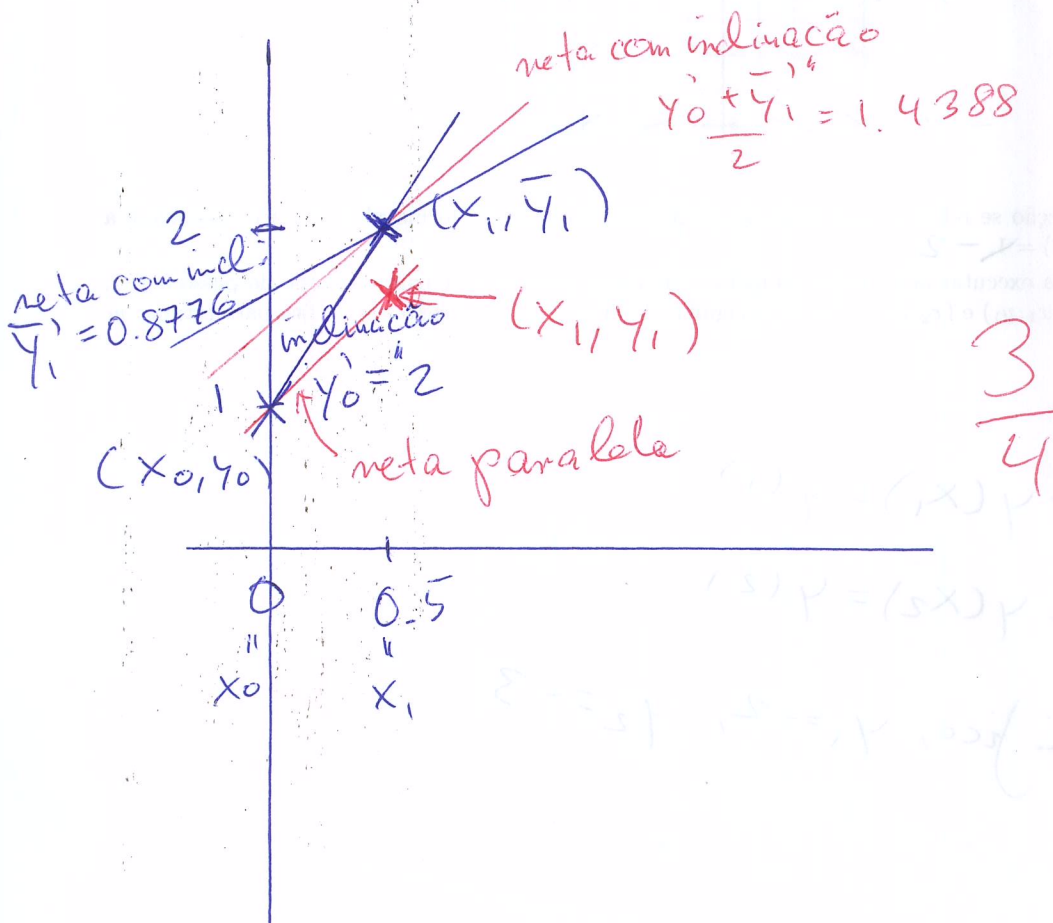 reta com inclinação
y0' + ȳ1' = 1.4388
2
2
(x1, ȳ1)
reta com incl:
ȳ1' = 0.8776
inclinação
y0' = 2
(x1, y1)
1
(x0, y0)
reta paralela
3
4
0
0.5
"
"
x0
x1